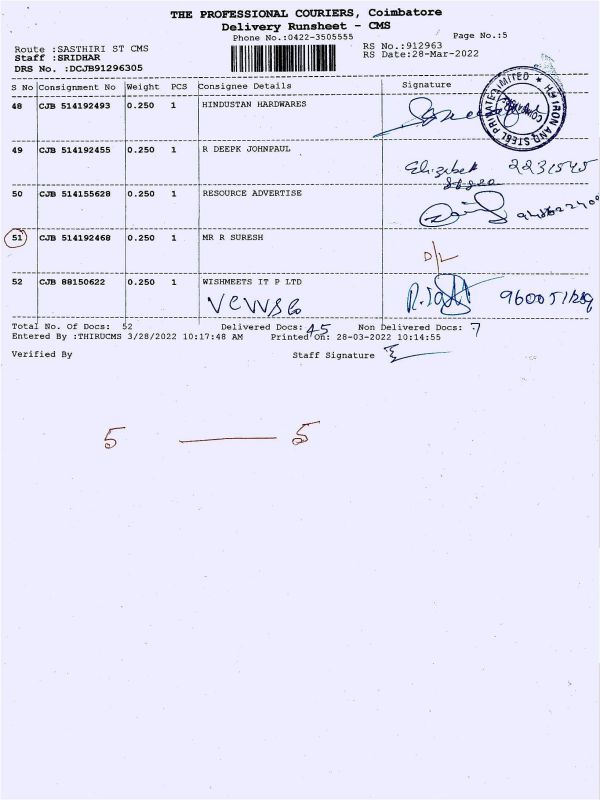 THE PROFESSIONAL COURIERS, Coimbatore
Delivery Runsheet - CMS
Phone No.:0422-3505555
Page No.:5
Route :SASTHIRI ST CMS
RS No.:912963
Staff :SRIDHAR
RS Date:28-Mar-2022
DRS No. :DCJB91296305
S No Consignment No Weight PCS Consignee Details Signature
48 CJB 514192493 0.250 1 HINDUSTAN HARDWARES
49 CJB 514192455 0.250 1 R DEEPK JOHNPAUL
Elizabeth 2231545
50 CJB 514155628 0.250 1 RESOURCE ADVERTISE
51 CJB 514192468 0.250 1 MR R SURESH
D/L
52 CJB 88150622 0.250 1 WISHMEETS IT P LTD
Total No. Of Docs: 52 Delivered Docs: 45 Non Delivered Docs: 7
Entered By :THIRUCMS 3/28/2022 10:17:48 AM Printed On: 28-03-2022 10:14:55
Verified By Staff Signature
5 — 5